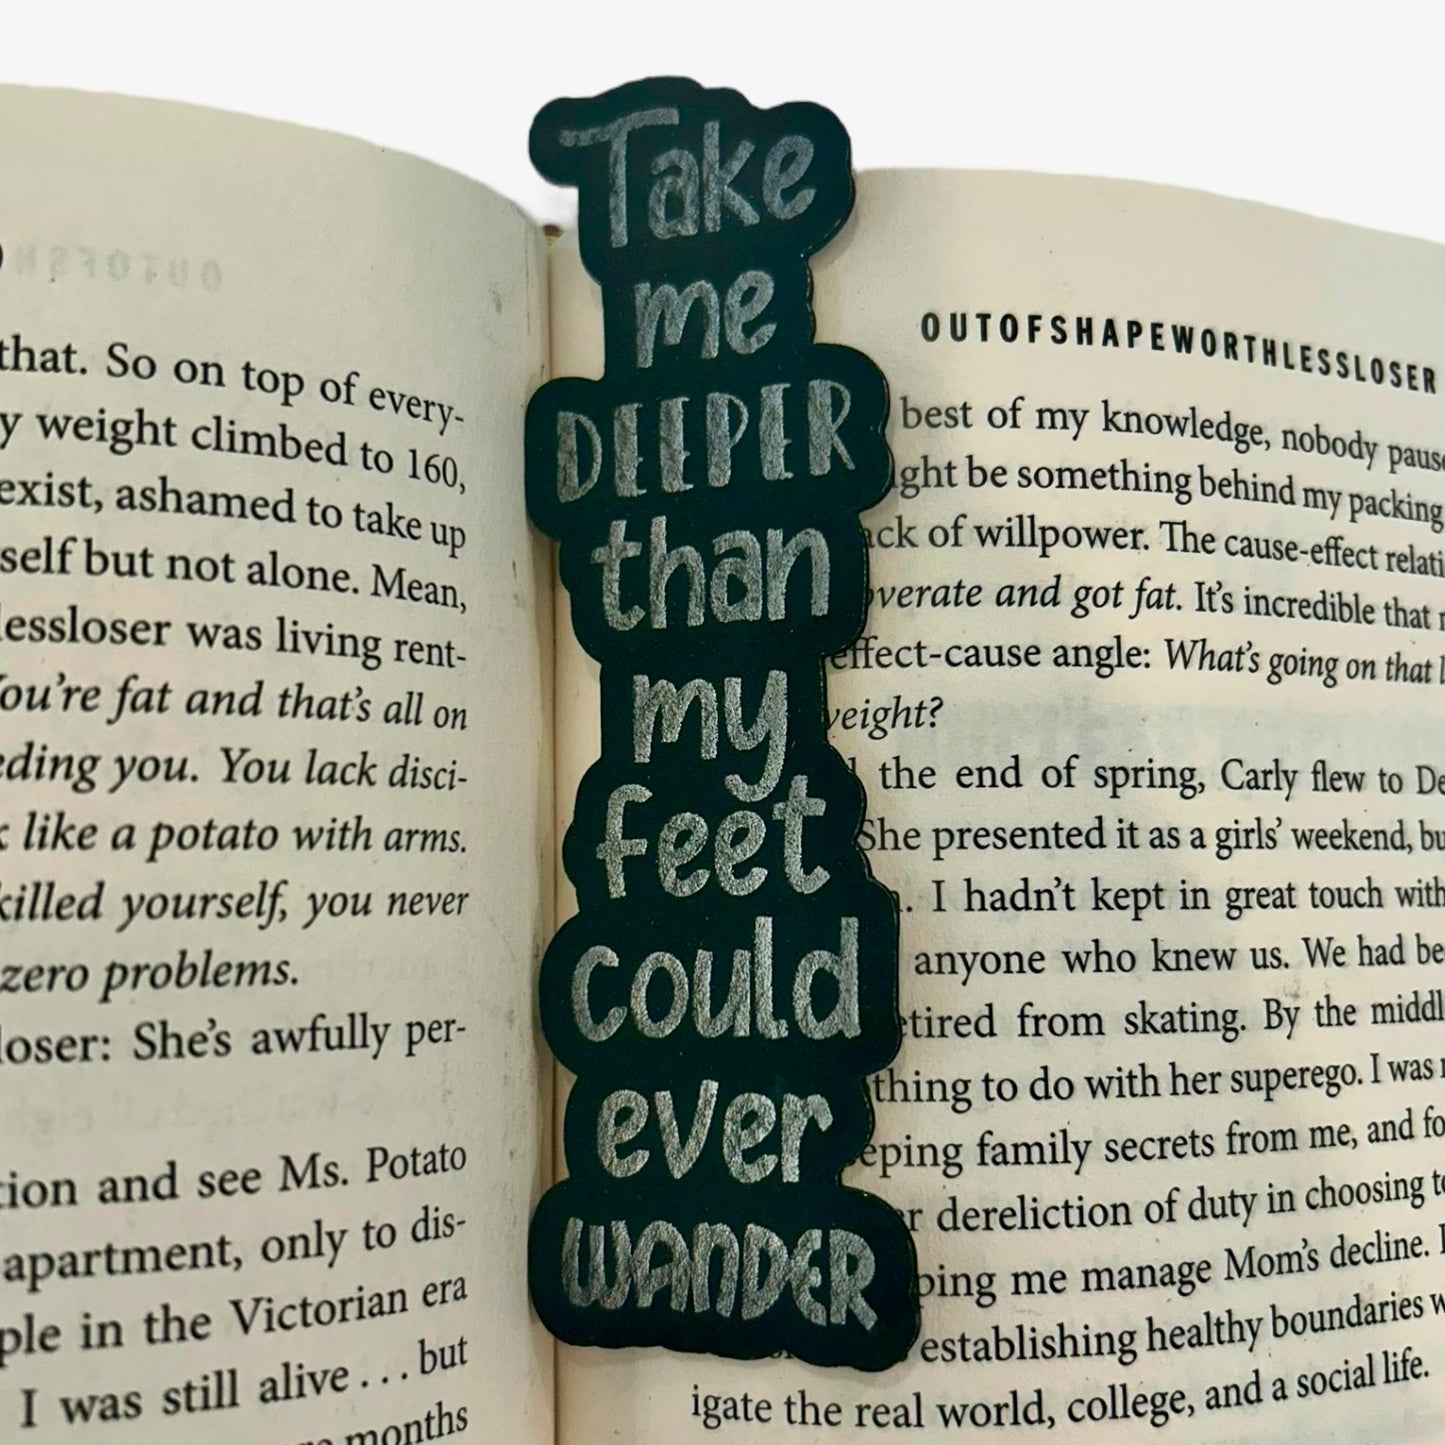 that. So on top of every-
weight climbed to 160,
exist, ashamed to take up
self but not alone. Mean,
lessloser was living rent-
You're fat and that's all on
eding you. You lack disci-
like a potato with arms.
killed yourself, you never
zero problems.
loser: She's awfully per-
tion and see Ms. Potato
apartment, only to dis-
ple in the Victorian era
I was still alive . . . but
months
Take
me
DEEPER
than
my
feet
could
ever
WANDER
OUTOFSHAPEWORTHLESSLOSER
best of my knowledge, nobody
ght be something behind my packing
ack of willpower. The cause-effect
overate and got fat. It's incredible that
effect-cause angle: What's going on that
weight?
the end of spring, Carly flew to
She presented it as a girls' weekend,
I hadn't kept in great touch with
anyone who knew us. We had
etired from skating. By the
thing to do with her superego. I was
eping family secrets from me, and
dereliction of duty in choosing
ping me manage Mom's decline.
establishing healthy boundaries
igate the real world, college, and a social life.